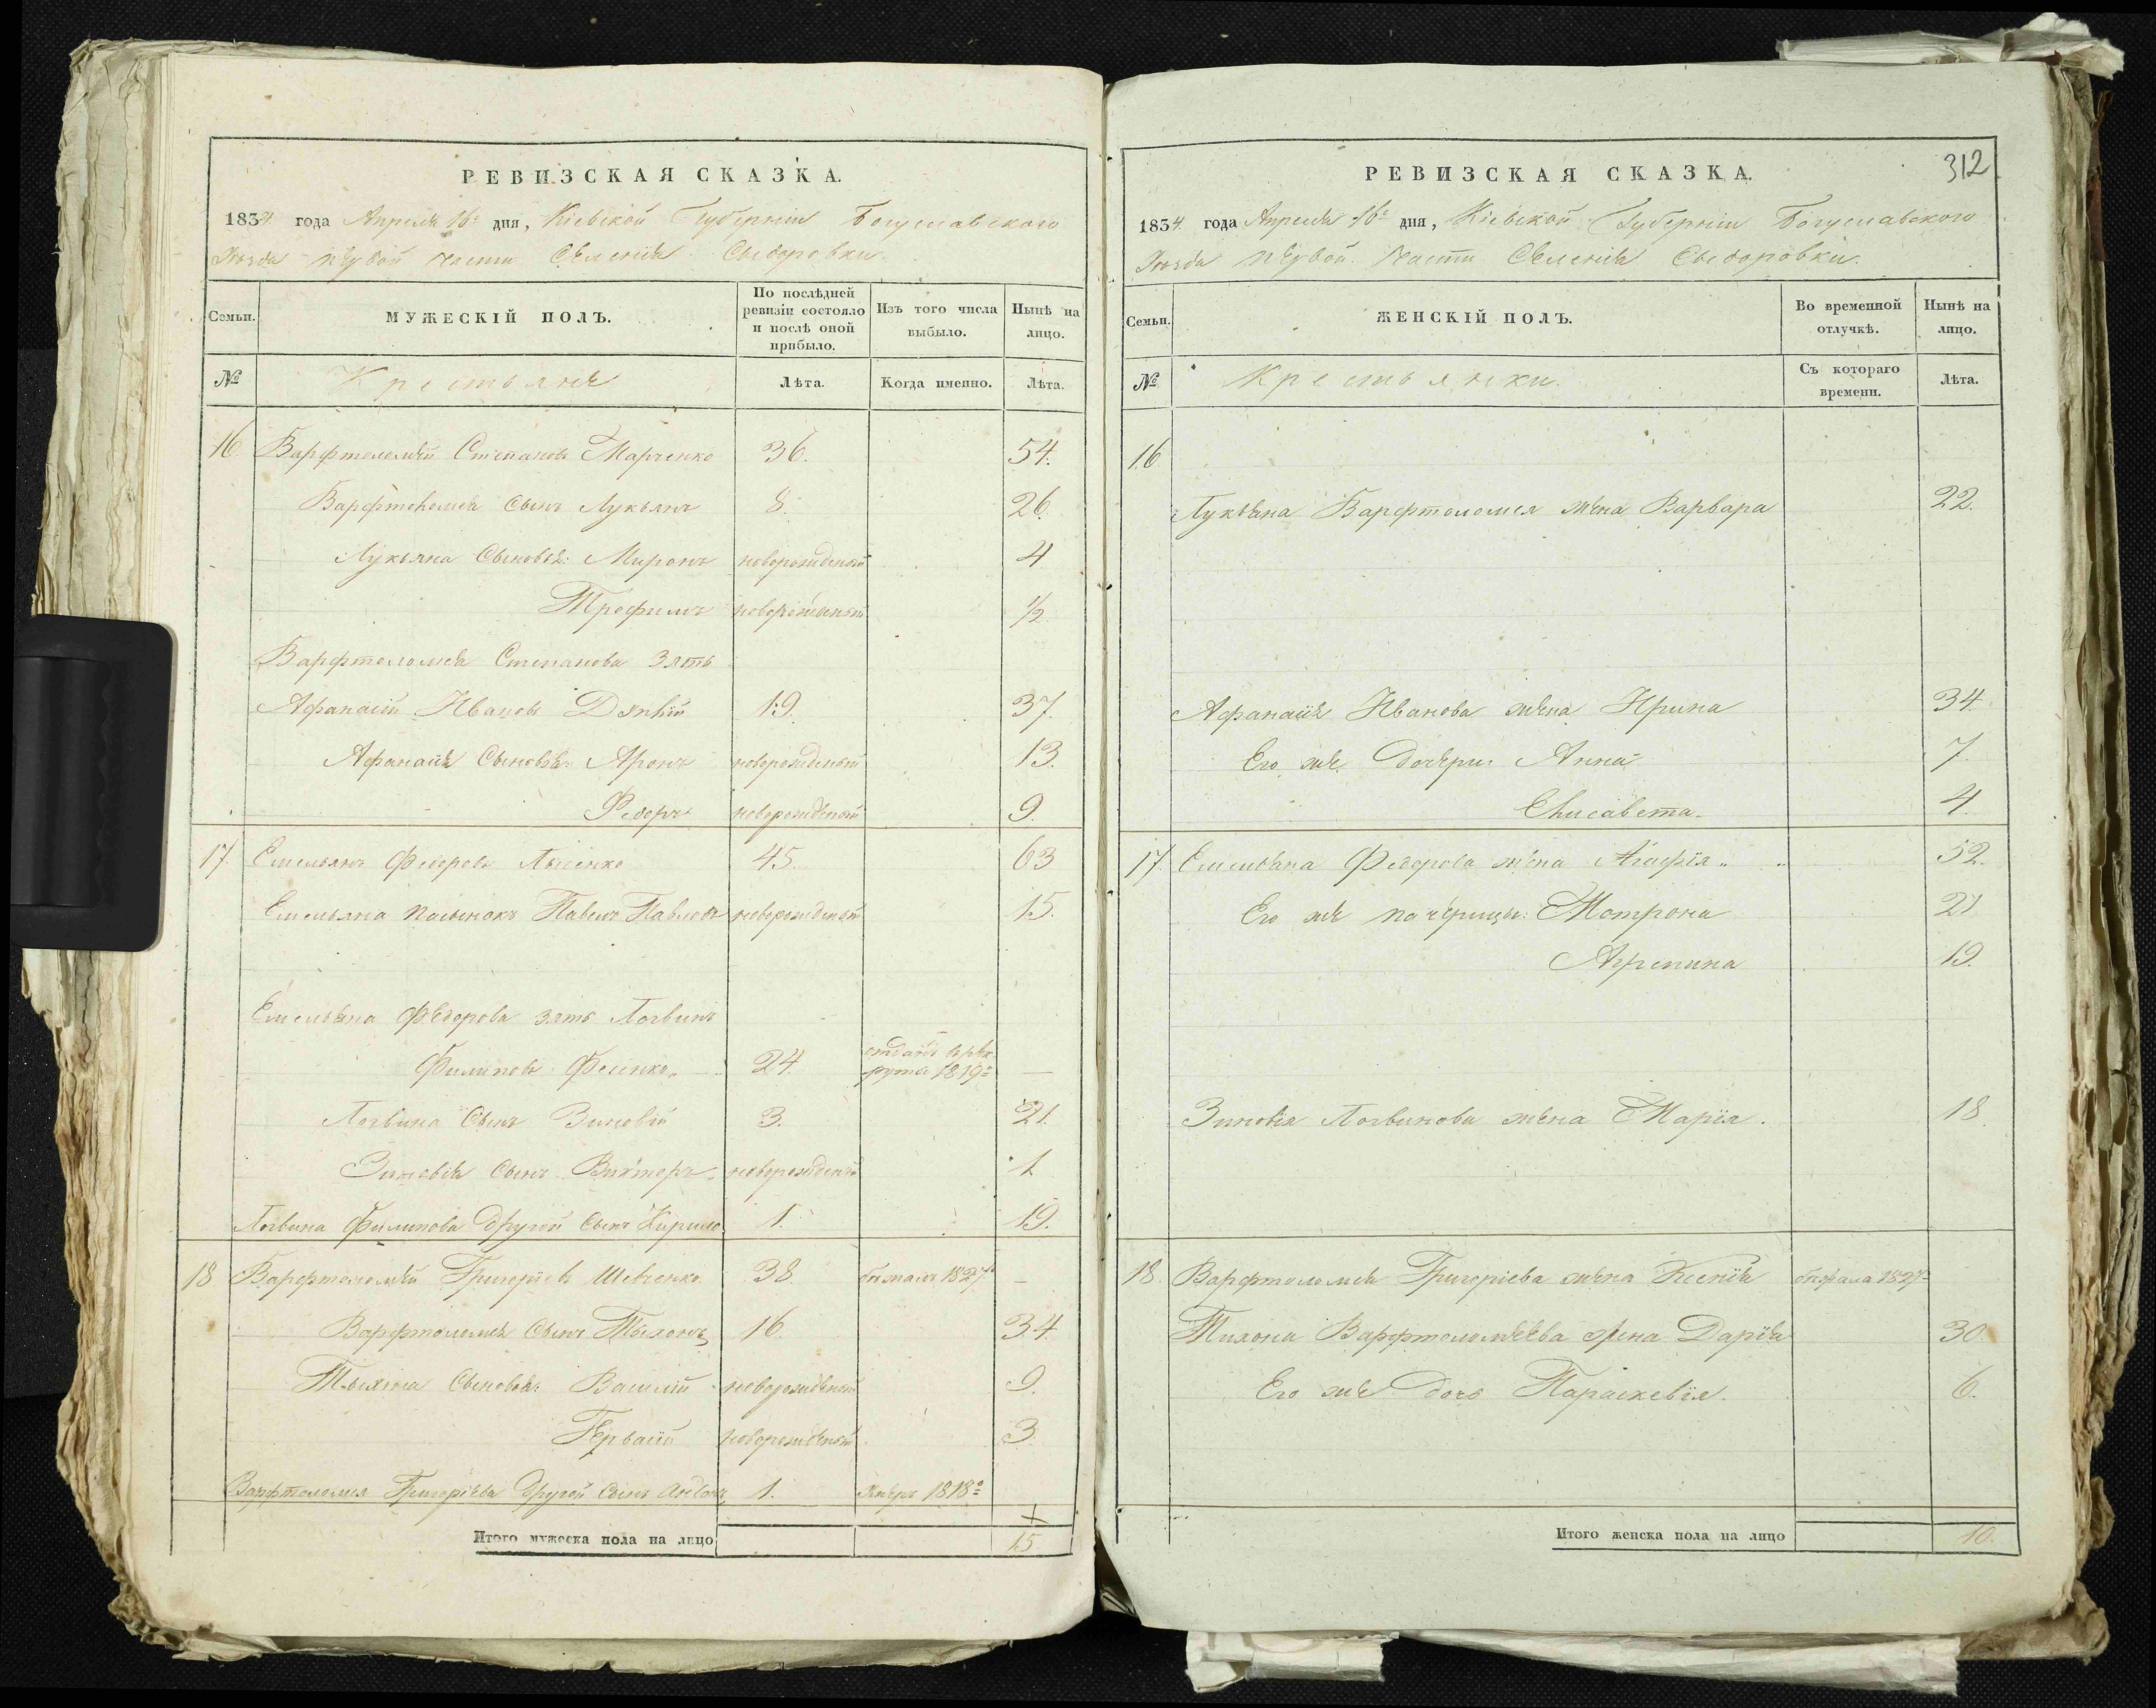 РЕВИЗСКАЯ СКАЗКА.
1834 года Апреля 16го дня, Кіевской Губерніи Богуславского
Уезда первой части Селенія Сыдоровки.
Семьи.
МУЖЕСКІЙ ПОЛЪ.
По послѣдней ревизіи состояло и послѣ оной прибыло.
Изъ того числа выбыло.
Нынѣ на лицо.
№ Крестьяне Лѣта. Когда именно. Лѣта.
16 Варфтоломей Степановъ Марченко 36. 54.
Варфтоломея Сынъ Лукьянъ 8. 26.
Лукьяна Сыновья: Миронъ новорожденый 4
Трофимъ новорожденый 1/2
Варфтоломея Степанова Зять
Афанасій Ивановъ 19. 37.
Афанасія Сыновья: Аронъ новорожденый 13.
Федоръ новорожденый 9.
17. Емельянъ Федоровъ Лысенко 45. 63
Емельяна пасынокъ Павелъ Павловъ новорожденый 15.
Емельяна Федорова зять Логвинъ
Филиповъ Фесенко 24. отданъ въ рекруты 1819го —
Логвина Сынъ Зиновій 3. 21.
Зиновія Сынъ Викторъ новорожденый 1
Логвина Филипова другой Сынъ Кирило 1. 19.
18 Варфтоломей Григоріевъ Шевченко 38. 1827 —
Варфтоломея Сынъ Тыхонъ 16. 34.
Тыхона Сыновья: Василій новорожденый 9.
Гервасій новорожденый 3
Варфтоломея Григоріева другой Сынъ 1. Умеръ 1818го
Итого мужеска пола на лицо 15.
312
РЕВИЗСКАЯ СКАЗКА.
1834 года Апреля 16го дня, Кіевской Губерніи Богуславского
Уезда первой части Селенія Сыдоровки.
Семьи.
ЖЕНСКІЙ ПОЛЪ.
Во временной отлучкѣ.
Нынѣ на лицо.
№ Крестьянки. Съ котораго времени. Лѣта.
16
Лукьяна Варфтоломея жена Варвара 22.
Афанасія Иванова жена Ирина 34.
Его же Дочери: Анна 7.
Елисавета. 4.
17. Емельяна Федорова жена Агафія 52.
Его же пачерицы: Мотрона 21
Агрепина 19.
Зиновія Логвинова жена Марія. 18.
18. Варфтоломея Григоріева жена Ксенія 1827
Тихона Варфтоломеева жена Дарія 30.
Его же дочь Параскевія. 6.
Итого женска пола на лицо 10.